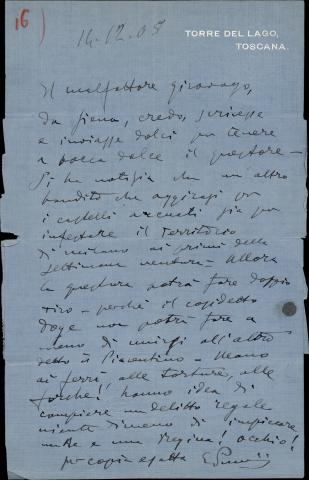 16)
14.12.05
TORRE DEL LAGO,
TOSCANA.
Il malfattore girovago,
da Siena, credo, scrivesse
e inviasse dolci per tenere
a bocca dolce il questore –
Si ha notizia che un altro
bandito che aggirasi per
i castelli arcuati sia per
infestare il territorio
di Milano ai primi della
settimana ventura – Allora
la questura potrà fare doppio
tiro – perchè il cosidetto
Doge non potrà fare a
meno di unirsi all'altro
detto il Piacentino – Mano
ai ferri, alle torture, alle
forche! hanno idea di
compiere un delitto regale
niente dimeno di impiccare
un Re e una Regina! occhio!
per copia esatta